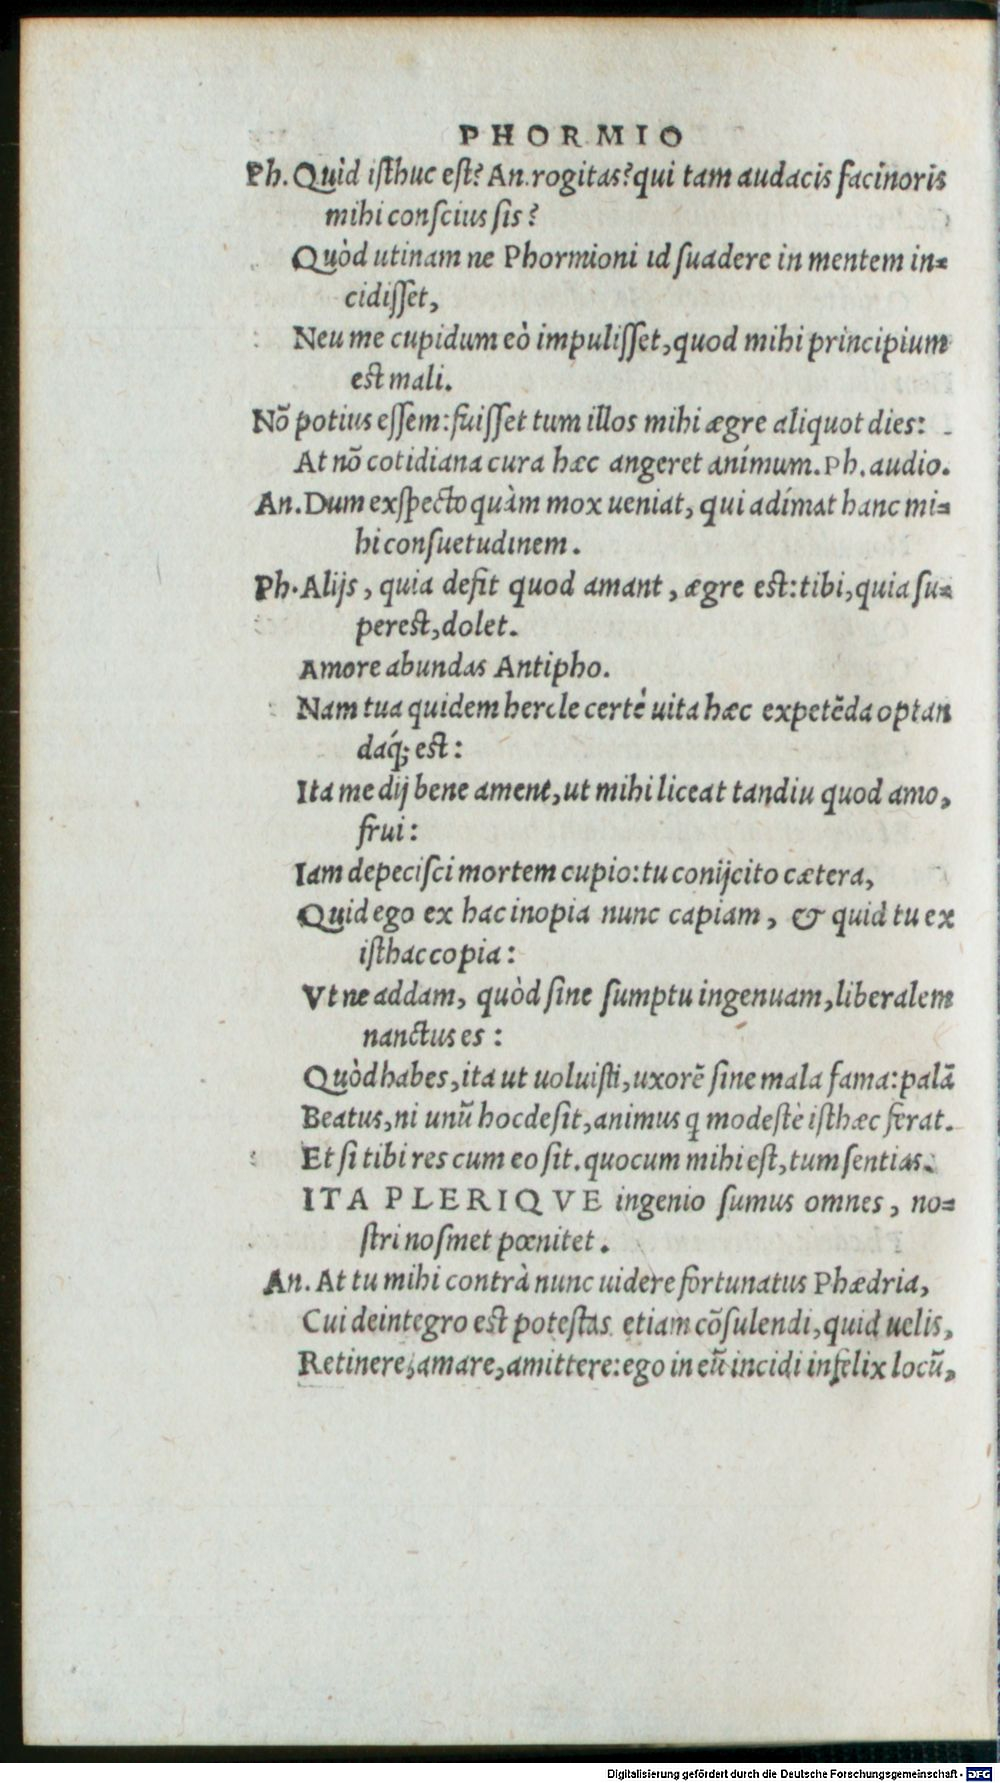 PHORMIO
Ph. Quid isthuc est? An. rogitas? qui tam audacis facinoris
mihi conscius sis?
Quòd utinam ne Phormioni id suadere in mentem in=
cidisset,
Neu me cupidum eò impulisset, quod mihi principium
est mali.
Nõ potius essem: fuisset tum illos mihi ægre aliquot dies:
At nõ cotidiana cura hæc angeret animum. Ph. audio.
An. Dum exspecto quàm mox ueniat, qui adimat hanc mi=
hi consuetudinem.
Ph. Alijs, quia defit quod amant, ægre est: tibi, quia su=
perest, dolet.
Amore abundas Antipho.
Nam tua quidem hercle certè uita hæc expetẽda optan
daq́; est:
Ita me dij bene ament, ut mihi liceat tandiu quod amo,
frui:
Iam depecisci mortem cupio: tu conijcito cætera,
Quid ego ex hac inopia nunc capiam, & quid tu ex
isthac copia:
Vt ne addam, quòd sine sumptu ingenuam, liberalem
nanctus es:
Quòd habes, ita ut uoluisti, uxorẽ sine mala fama: palã
Beatus, ni unũ hoc desit, animus q modestè isthæc ferat.
Et si tibi res cum eo sit. quocum mihi est, tum sentias.
ITA PLERIQVE ingenio sumus omnes, no=
stri nosmet pœnitet.
An. At tu mihi contrà nunc uidere fortunatus Phædria,
Cui de integro est potestas etiam cõsulendi, quid uelis,
Retinere, amare, amittere: ego in eũ incidi infelix locũ,
Digitalisierung gefördert durch die Deutsche Forschungsgemeinschaft - DFG